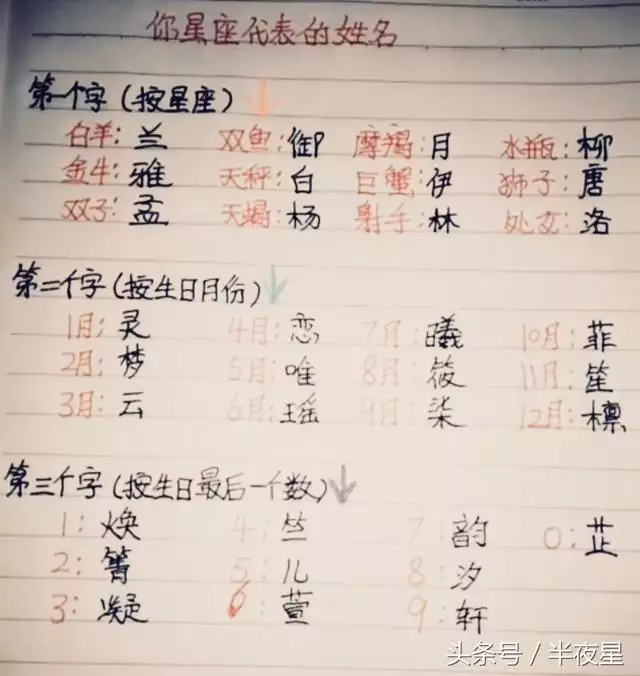 你星座代表的姓名
第一个字(按星座)
白羊:兰 双鱼:御 摩羯:月 水瓶:柳
金牛:雅 天秤:白 巨蟹:伊 狮子:唐
双子:孟 天蝎:杨 射手:林 处女:洛
第二个字(按生日月份)
1月:灵 4月:恋 7月:曦 10月:菲
2月:梦 5月:唯 8月:筱 11月:笙
3月:云 6月:瑶 9月:柒 12月:檩
第三个字(按生日最后一个数)
1:焕 4:竺 7:韵 0:芷
2:箐 5:儿 8:汐
3:凝 6:萱 9:轩
头条号/半夜星